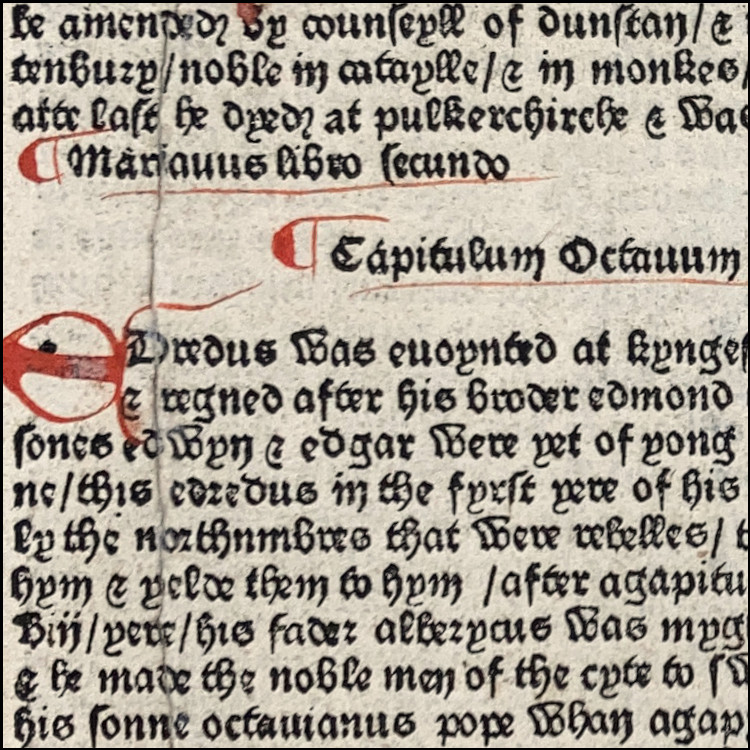 be amended by counseyll of dunstan/ &
tenbury/ noble in cataylle/ & in monkes/
atte last he dyed at pulkerchirche & was
¶ Marianus libro secundo
¶ Capitulum Octauum
EDredus was enoynted at kynges
& regned after his broder edmond
sones edwyn & edgar were yet of yong
ne/ this edredus in the fyrst yere of his
ly the northumbres that were rebelles/
hym & yelde them to hym / after agapitu
viij/ yere/ his fader alberycus was myg
& he made the noble men of the cyte to sw
his sonne octauianus pope whan agap